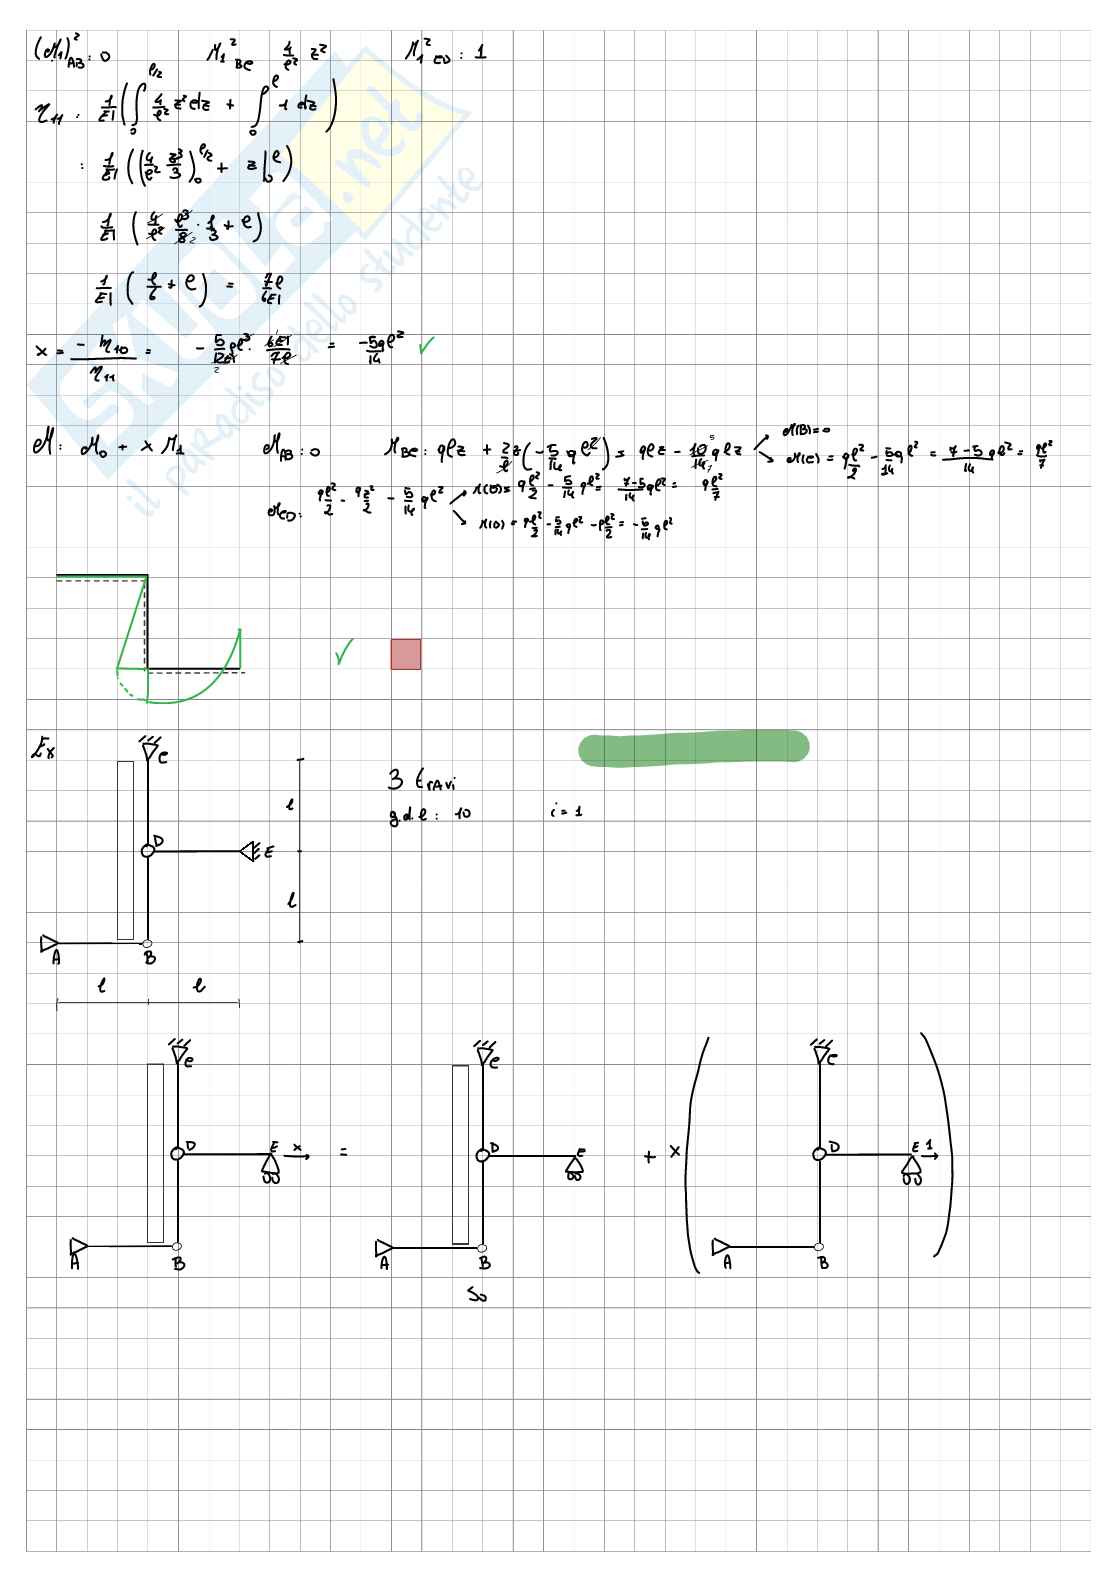 (M₁)²AB : 0    M₁²BC  4/ℓ² z²    M₁²CD : 1
η₁₁ : 1/EI ( ∫₀^ℓ/2 4/ℓ² z² dz + ∫₀^ℓ 1 dz )
: 1/EI ( (4/ℓ² z³/3)₀^ℓ/2 + z|₀^ℓ )
1/EI ( 4/ℓ² ℓ³/8₂ · 1/3 + ℓ )
1/EI ( ℓ/6 + ℓ ) = 7ℓ/6EI
x = - η₁₀ / η₁₁ = - 5/12EI qℓ³ · 6EI/7ℓ = -5qℓ²/14 ✓
M : M₀ + x M₁    M_AB : 0    M_BC : qℓz + 2/ℓ z ( - 5/14 qℓ² ) = qℓz - 10/14 qℓz    M(B)=0
M(C) = qℓ²/2 - 5qℓ²/14 = 7-5/14 qℓ² = qℓ²/7
M_CD : qℓ²/2 - qz²/2 - 5/14 qℓ²    M(C) = qℓ²/2 - 5/14 qℓ² = 7-5/14 qℓ² = qℓ²/7
M(D) = qℓ²/2 - 5/14 qℓ² - qℓ²/2 = - 5/14 qℓ²
✓
Ex
C
3 travi
ℓ
gdℓ : 10    i = 1
D
E
ℓ
A
B
ℓ    ℓ
C    C    C
D    E    x    =    D    E    + x    D    E    1
A    B    A    B    A    B
S₀
il paradiso dello studente
SKUOLA.net